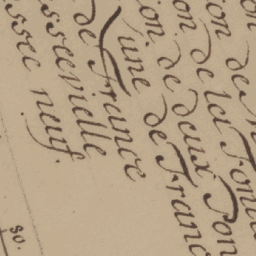 on de
on de la Fon
ion de deux Pon
l'une de Franc
de France
sseevielle
ssec neuf.
80.